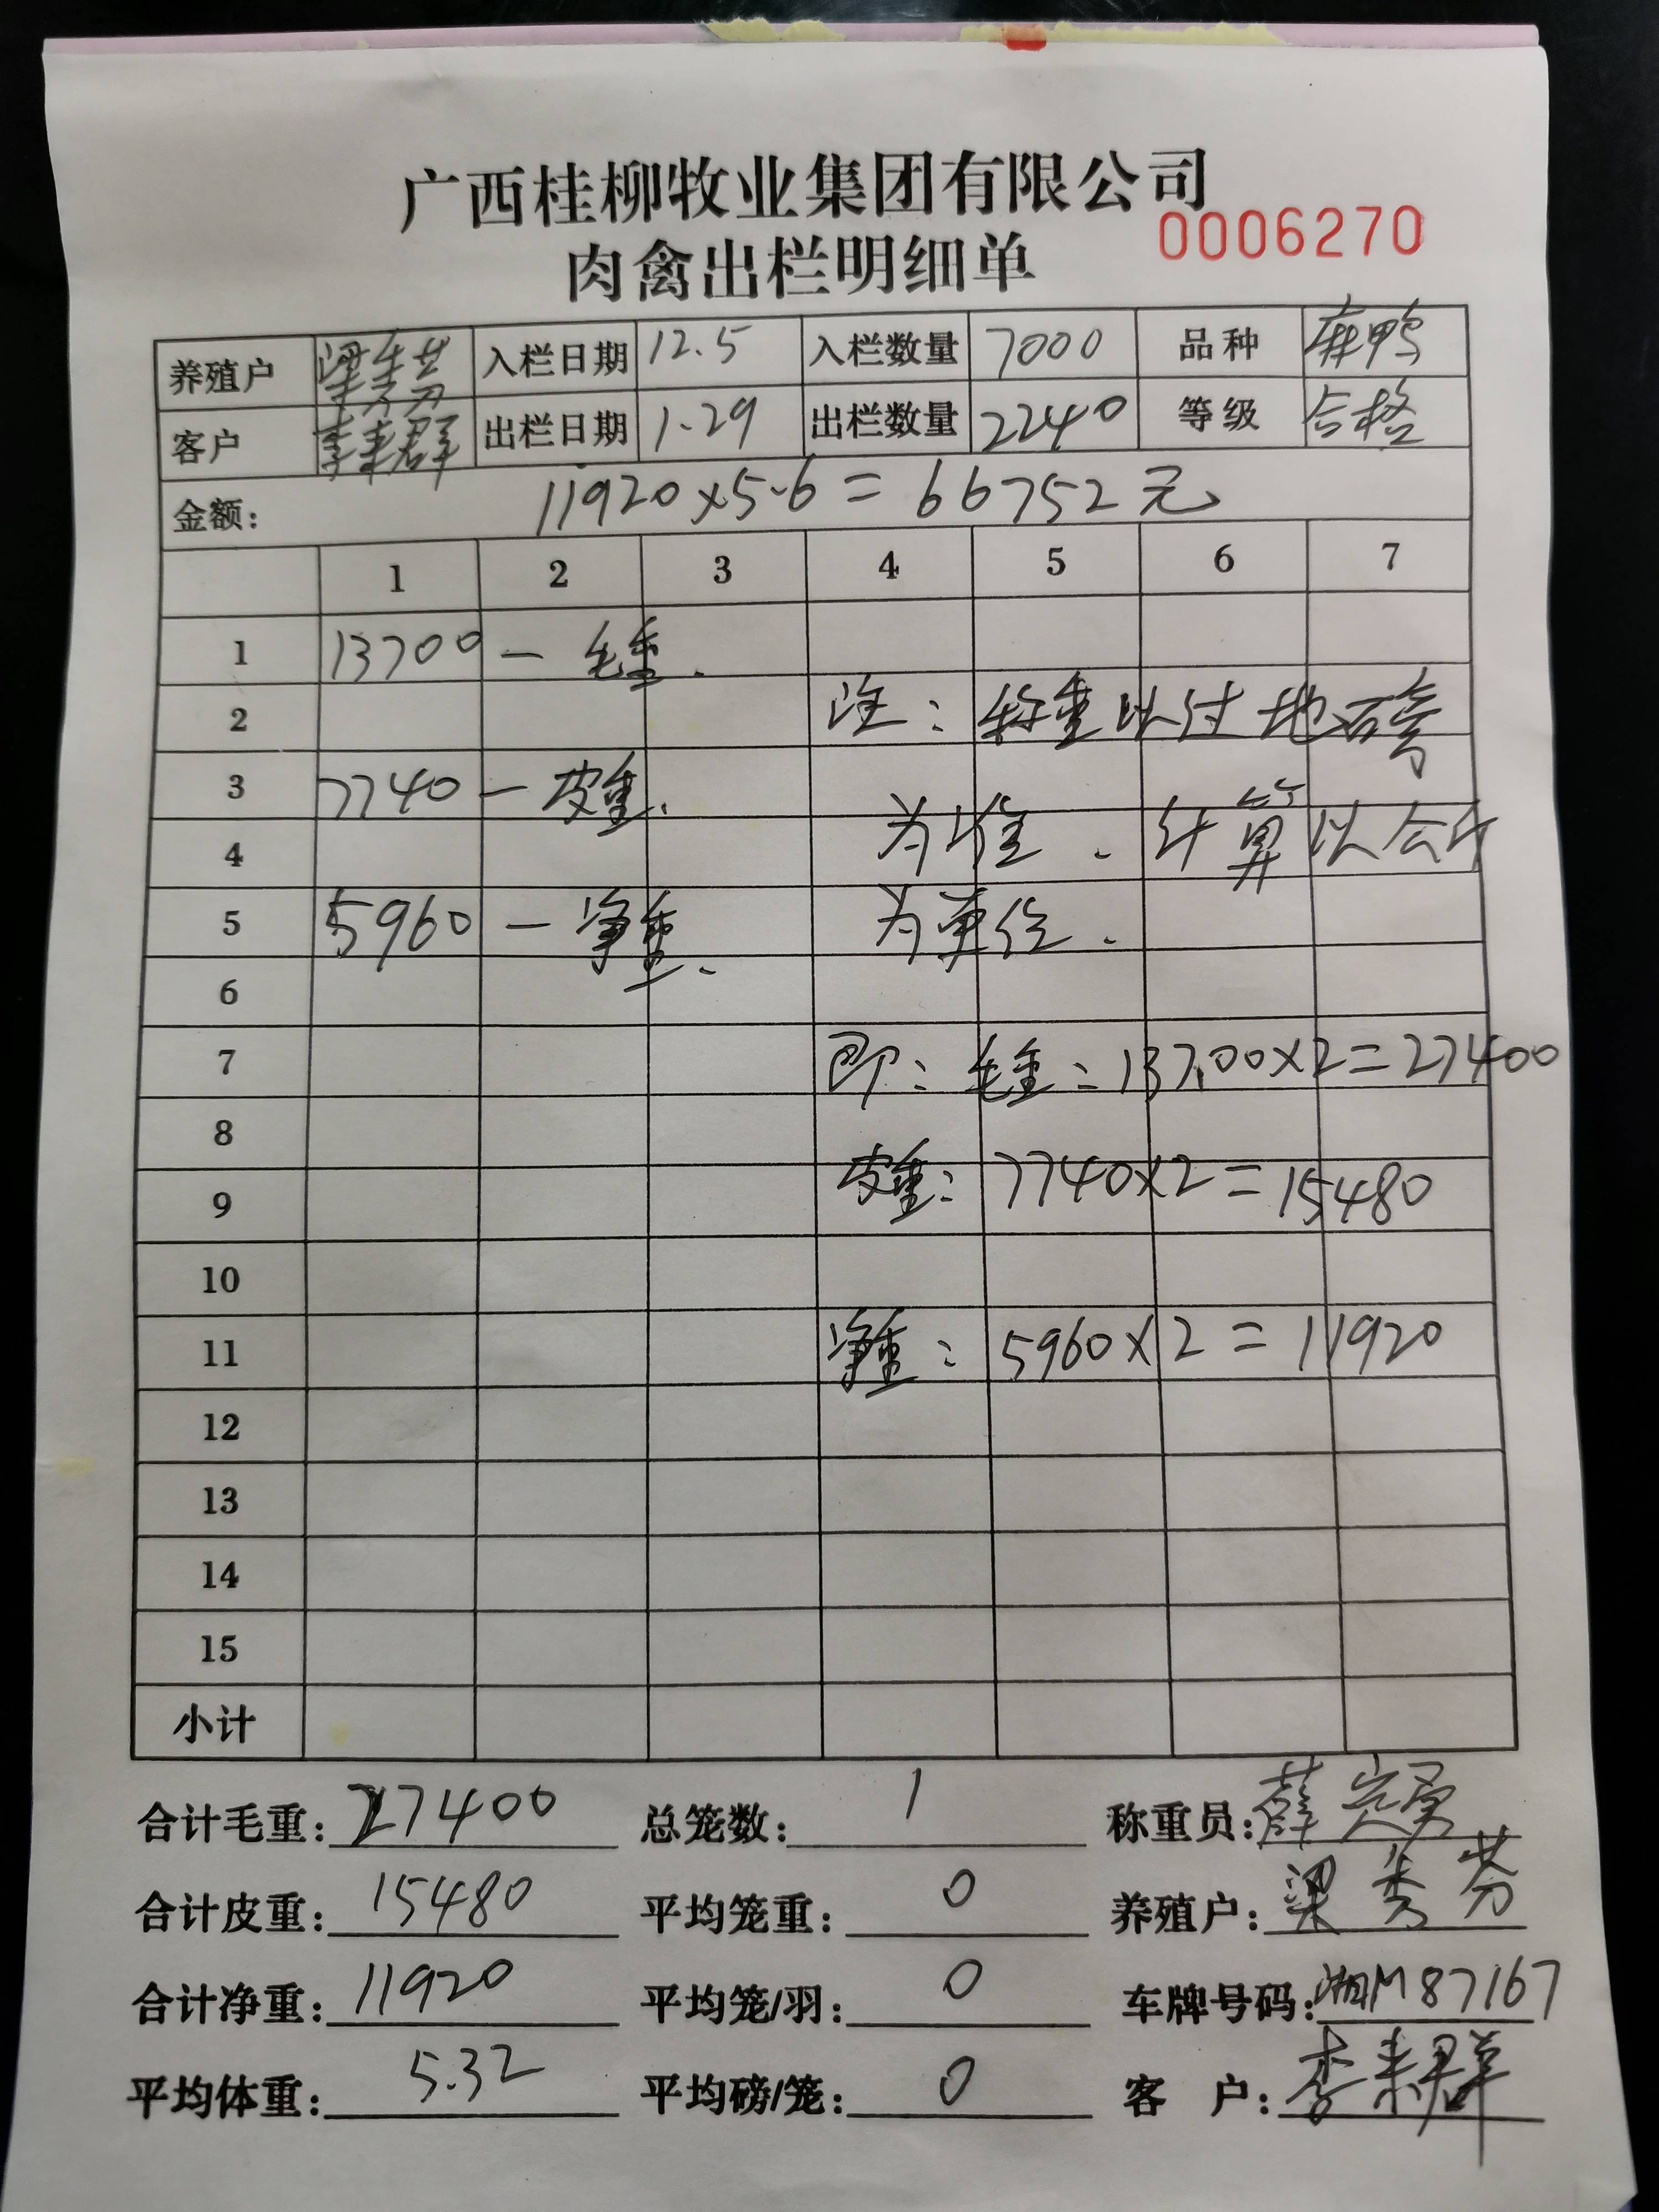 广西桂柳牧业集团有限公司
肉禽出栏明细单 0006270
养殖户 梁秀芬 入栏日期 12.5 入栏数量 7000 品种 麻鸭
客户 李来群 出栏日期 1.29 出栏数量 2240 等级 合格
金额: 11920×5.6=66752元
1 2 3 4 5 6 7
1 13700 - 毛重.
2 注: 称重以过地磅
3 7740 - 皮重.
4 为准、计算以公斤
5 5960 - 净重、 为单位.
6
7 即: 毛重: 13700×2=27400
8
9 皮重: 7740×2=15480
10
11 净重: 5960×2=11920
12
13
14
15
小计
合计毛重: 27400 总笼数: 1 称重员: 薛
合计皮重: 15480 平均笼重: 0 养殖户: 梁秀芬
合计净重: 11920 平均笼/羽: 0 车牌号码: 湘M87167
平均体重: 5.32 平均磅/笼: 0 客 户: 李来群